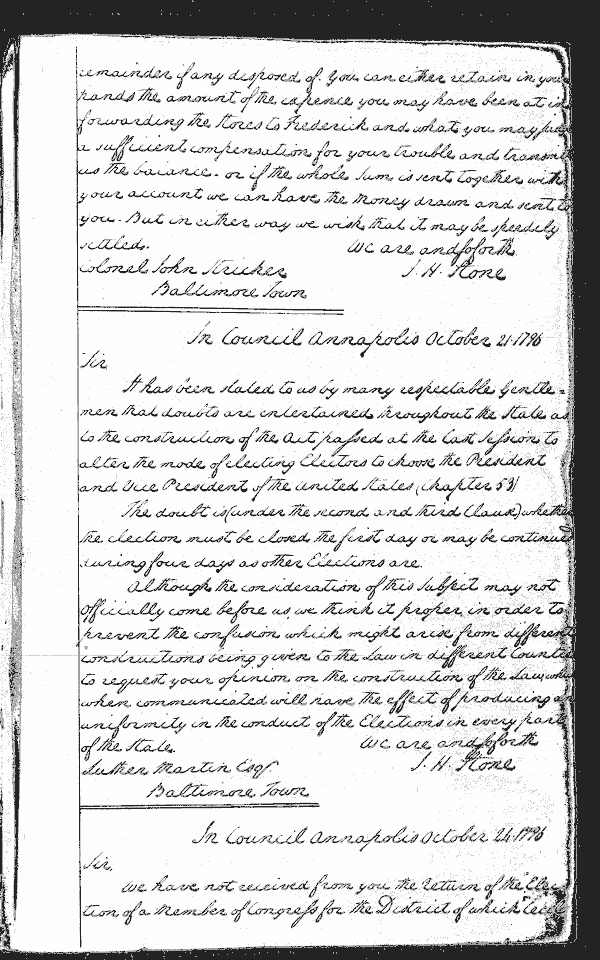 remainder if any disposed of. You can either retain in your
hands the amount of the expence you may have been at in
forwarding the Stores to Frederick and what you may
a sufficient compensation for your trouble and transmit
us the balance - or if the whole Sum is sent together with
your account we can have the money drawn and sent to
you. But in either way we wish that it may be speedily
settled. We are and so forth
Colonel John Stricker J. H. Stone
Baltimore Town
In Council Annapolis October 21. 1796
Sir
It has been stated to us by many respectable Gentle=
men that doubts are entertained throughout the State as
to the construction of the Act passed at the last Session to
alter the mode of electing Electors to choose the President
and Vice President of the United States (Chapter 53)
The doubt is (under the second and third Clause) whether
the election must be closed the first day or may be continued
during four days as other Elections are.
Although the consideration of this subject may not
officially come before us, we think it proper, in order to
prevent the confusion which might arise from different
constructions being given to the Law in different Counties
to request your opinion on the construction of the Law, which
when communicated will have the effect of producing an
uniformity in the conduct of the Elections in every part
of the State. We are and so forth
Luther Martin Esqr J. H. Stone
Baltimore Town
In Council Annapolis October 24. 1796
Sir,
We have not received from you the return of the Elec
tion of a Member of Congress for the District of which Cecil